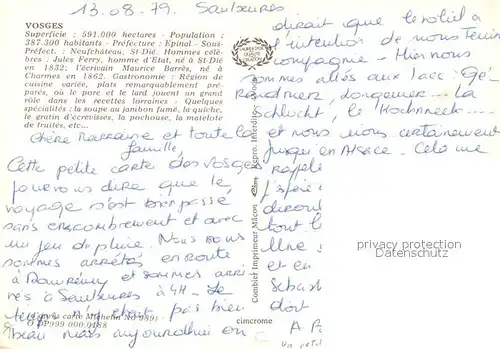 13.08.79. Saulxures
VOSGES
Superficie : 591.000 hectares - Population :
387.300 habitants - Préfecture : Epinal - Sous-
Préfect. : Neufchâteau, St-Dié. Hommes célè-
bres : Jules Ferry, homme d'Etat, né à St-Dié
en 1832; l'écrivain Maurice Barrès, né à
Charmes en 1862. Gastronomie : Région de
cuisine variée, plats remarquablement pré-
parés, où le porc et le lard jouent un grand
rôle dans les recettes lorraines - Quelques
spécialités : la soupe au jambon fumé, la quiche,
le gratin d'écrevisses, la pochouse, la matelote
de truites, etc...
Chère Marraine et toute la
famille,
Cette petite carte des Vosges
pour vous dire que le
voyage s'est bien passé
sans encombrement et avec
un peu de pluie. Nous nous
sommes arrêtés en route
à Domrémy et sommes arri-
vés à Saulxures à 4H. Le
temps n'était pas bien
beau mais aujourd'hui on
(d'après carte Michelin No 989)
O OP 999 000.0488
Combier Imprimeur Mâcon
Repro. Interdite
cimcrome
dirait que le soleil a
l'intention de nous tenir
compagnie - Hier nous
sommes allés aux lacs : Gé-
rardmer, Longemer... La
Schlucht, le Hohneck...
et nous irons certainement
jusqu'en Alsace - Cela me
rappell
J'espère
diront
tout l
Une
et en
Sebast
dont
A
un petit
privacy protection
www.delcampe.net